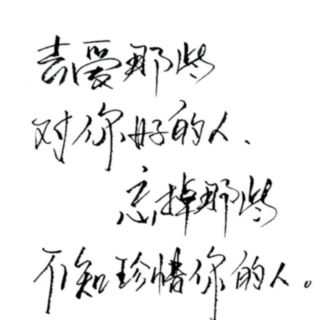 去爱那些
对你好的人、
忘掉那些
不知珍惜你的人。